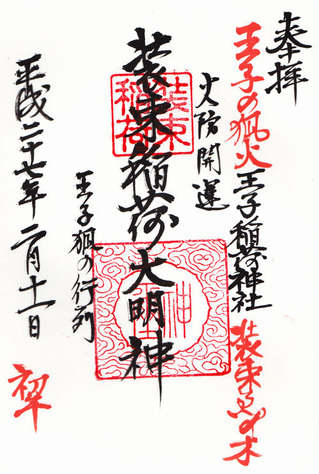 奉拝
王子の狐火
王子稲荷神社
装束ゑの木
火防開運
装束稲荷大明神
装束
稲荷
王子狐の行列
平成二十七年二月十一日
初午